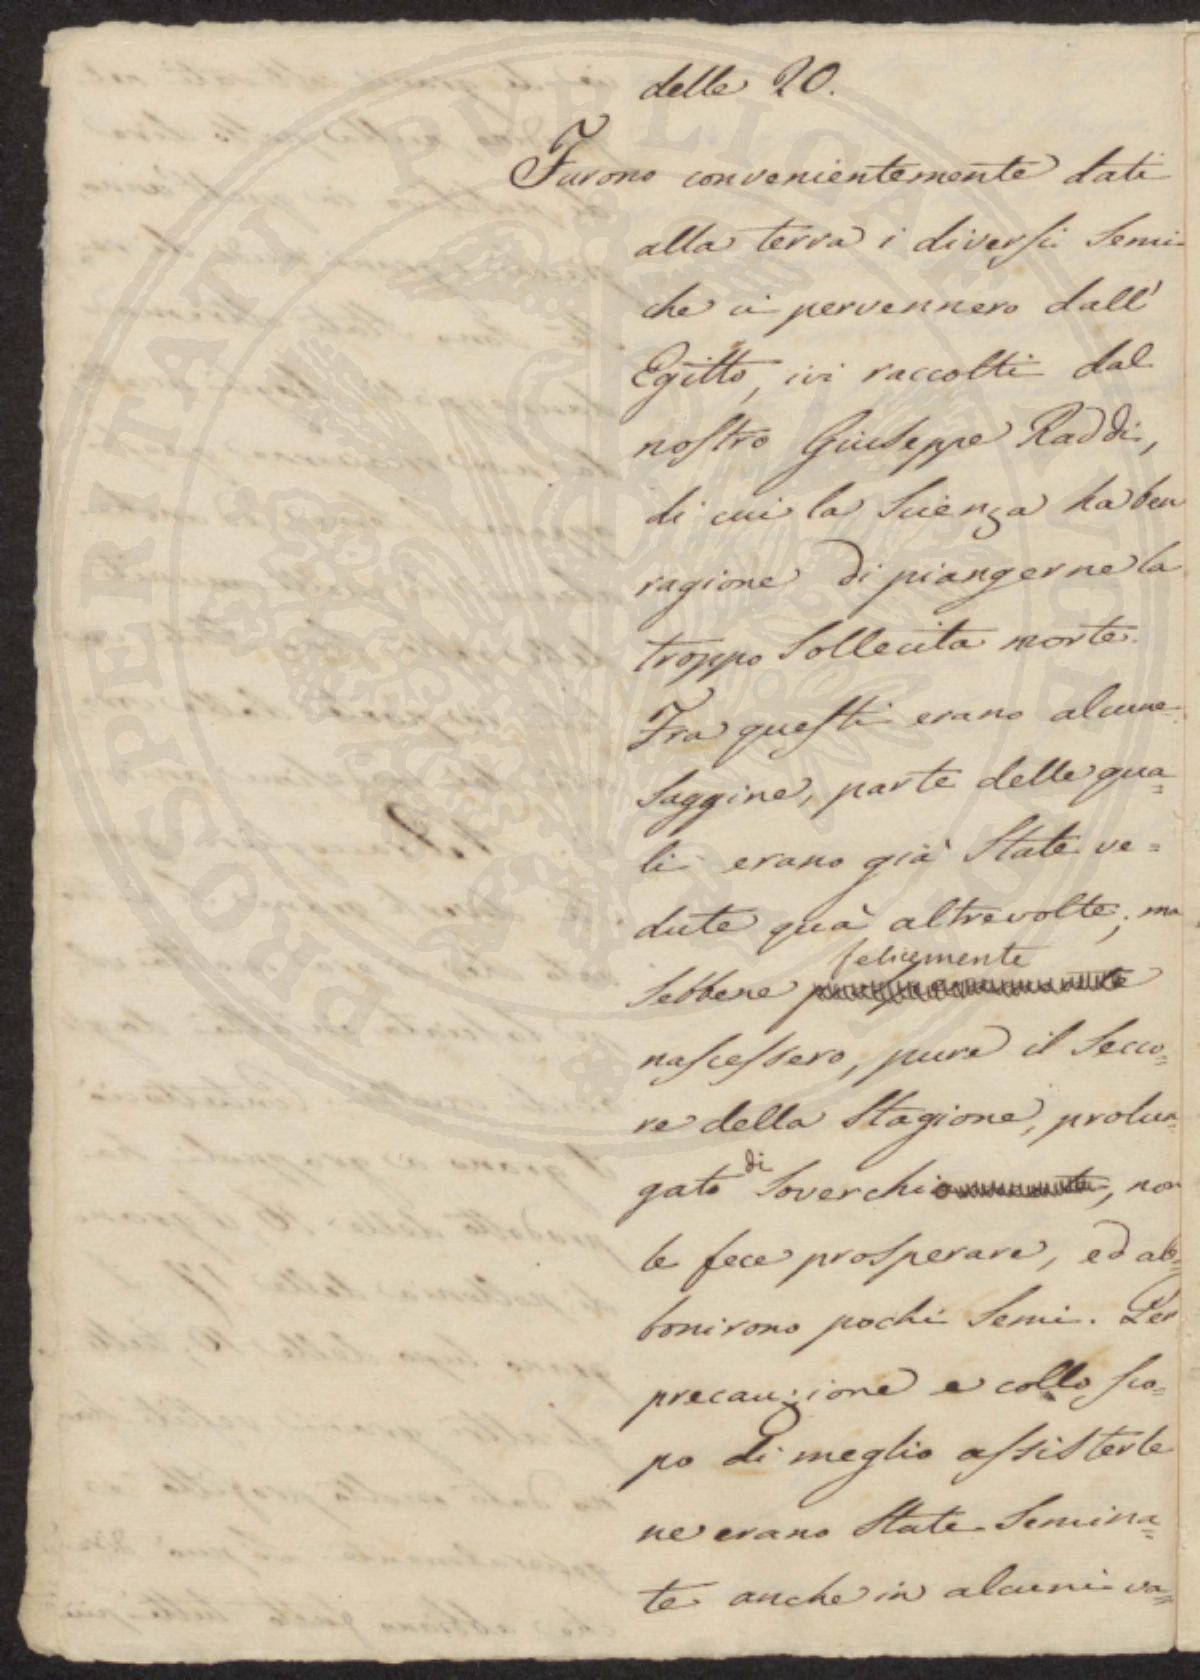 delle 20.
Furono convenientemente dati
alla terra i diversi Semi
che ci pervennero dall'
Egitto, ivi raccolti dal
nostro Giuseppe Raddi,
di cui la Scienza ha ben
ragione di piangerne la
troppo Sollecita morte.
Fra questi erano alcune
Saggine, parte delle qua=
li erano già State ve=
dute quà altrevolte; ma
felicemente
Sebbene
nascessero, pure il Secco=
re della Stagione, prolun=
gato di Soverchio, non
le fece prosperare, ed ab=
bonirono pochi Semi. Per
precauzione e collo sco=
po di meglio assisterle
ne erano State Semina=
te anche in alcuni va=
PROSPERITATI PUBLICAE AUGENDAE